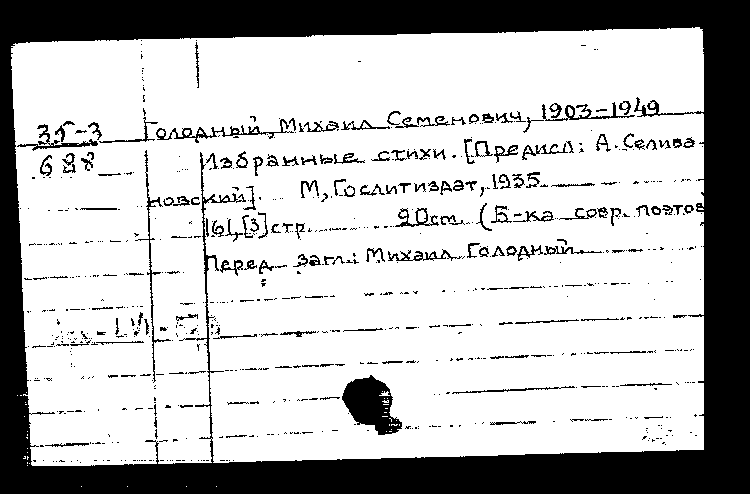 35-3 Голодный, Михаил Семенович, 1903-1949
688 Избранные стихи. [Предисл: А. Селива-
новский]. М, Гослитиздат, 1935
161,[3]стр. 20см. (Б-ка совр. поэтов
Перед загл.: Михаил Голодный.